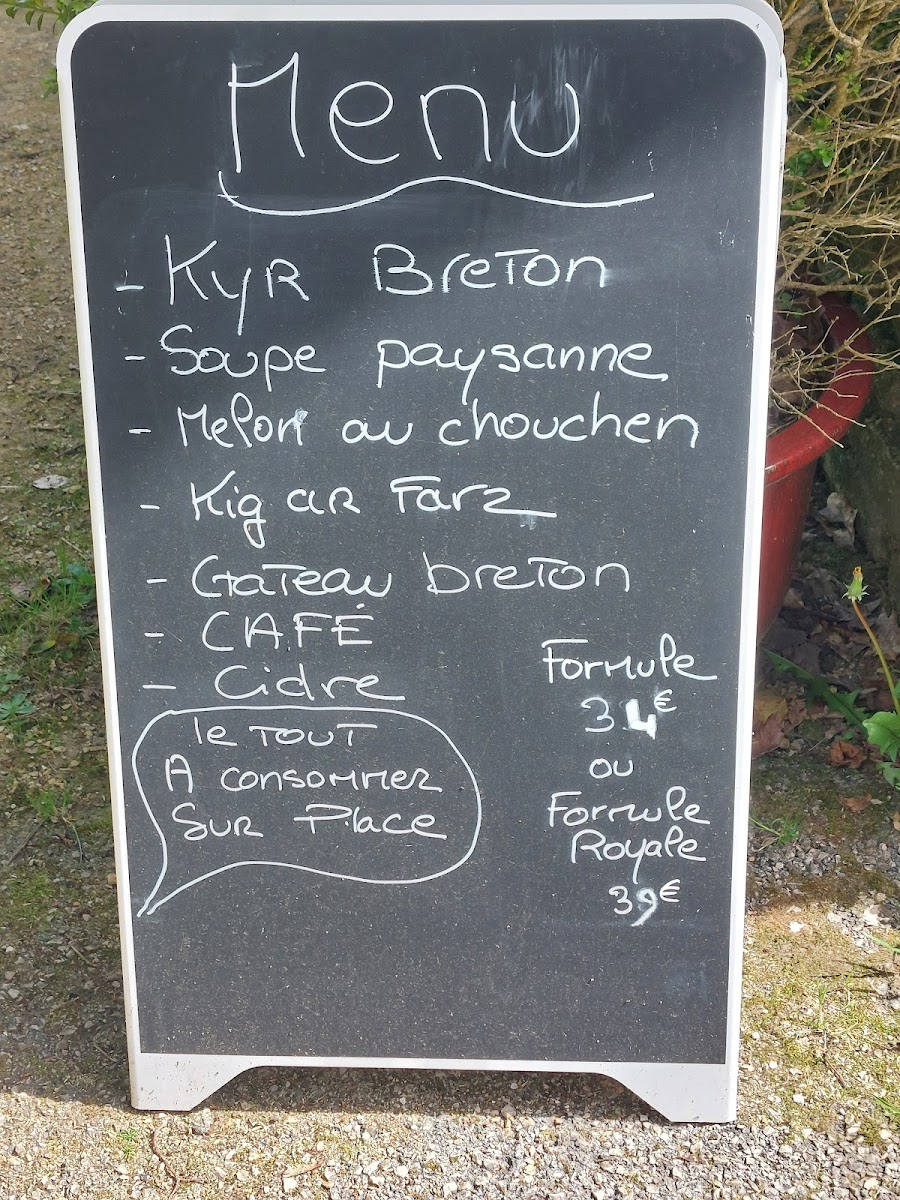 Menu
- Kyr Breton
- Soupe paysanne
- Melon au chouchen
- Kig ar Farz
- Gateau breton
- CAFÉ
- Cidre
le TOUT
A consommer
Sur Place
Formule
34€
ou
Formule
Royale
39€